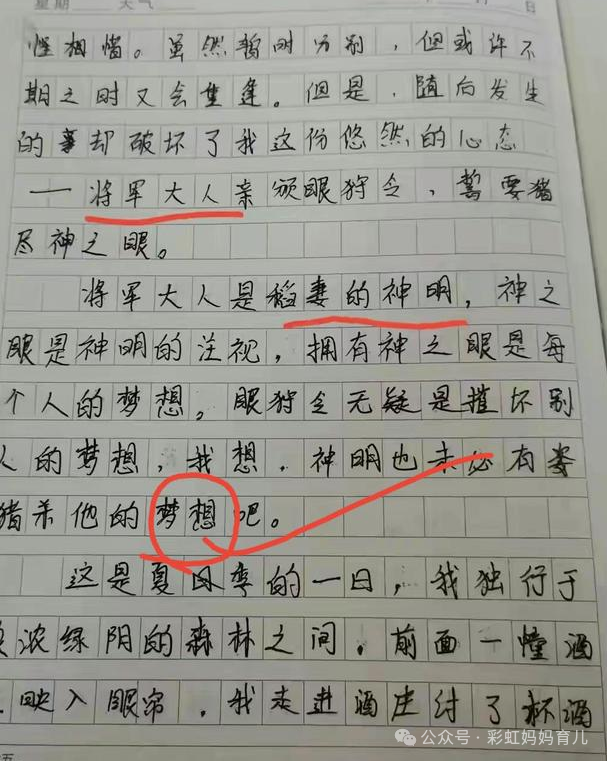 星期 天气 日
惺相惜。虽然暂时分别，但或许不
期之时又会重逢。但是，随后发生
的事却破坏了我这份悠然的心态
——将军大人亲颁眼狩令，誓要猪
尽神之眼。
将军大人是稻妻的神明，神之
眼是神明的注视，拥有神之眼是每
个人的梦想。眼狩令无疑是摧坏别
人的梦想，我想，神明也未必有
猎杀他的梦想吧。
这是夏日季的一日，我独行于
浓绿阴的森林之间，前面一幢酒
映入眼帘，我走进酒庄付了杯酒
公众号·彩虹妈妈育儿